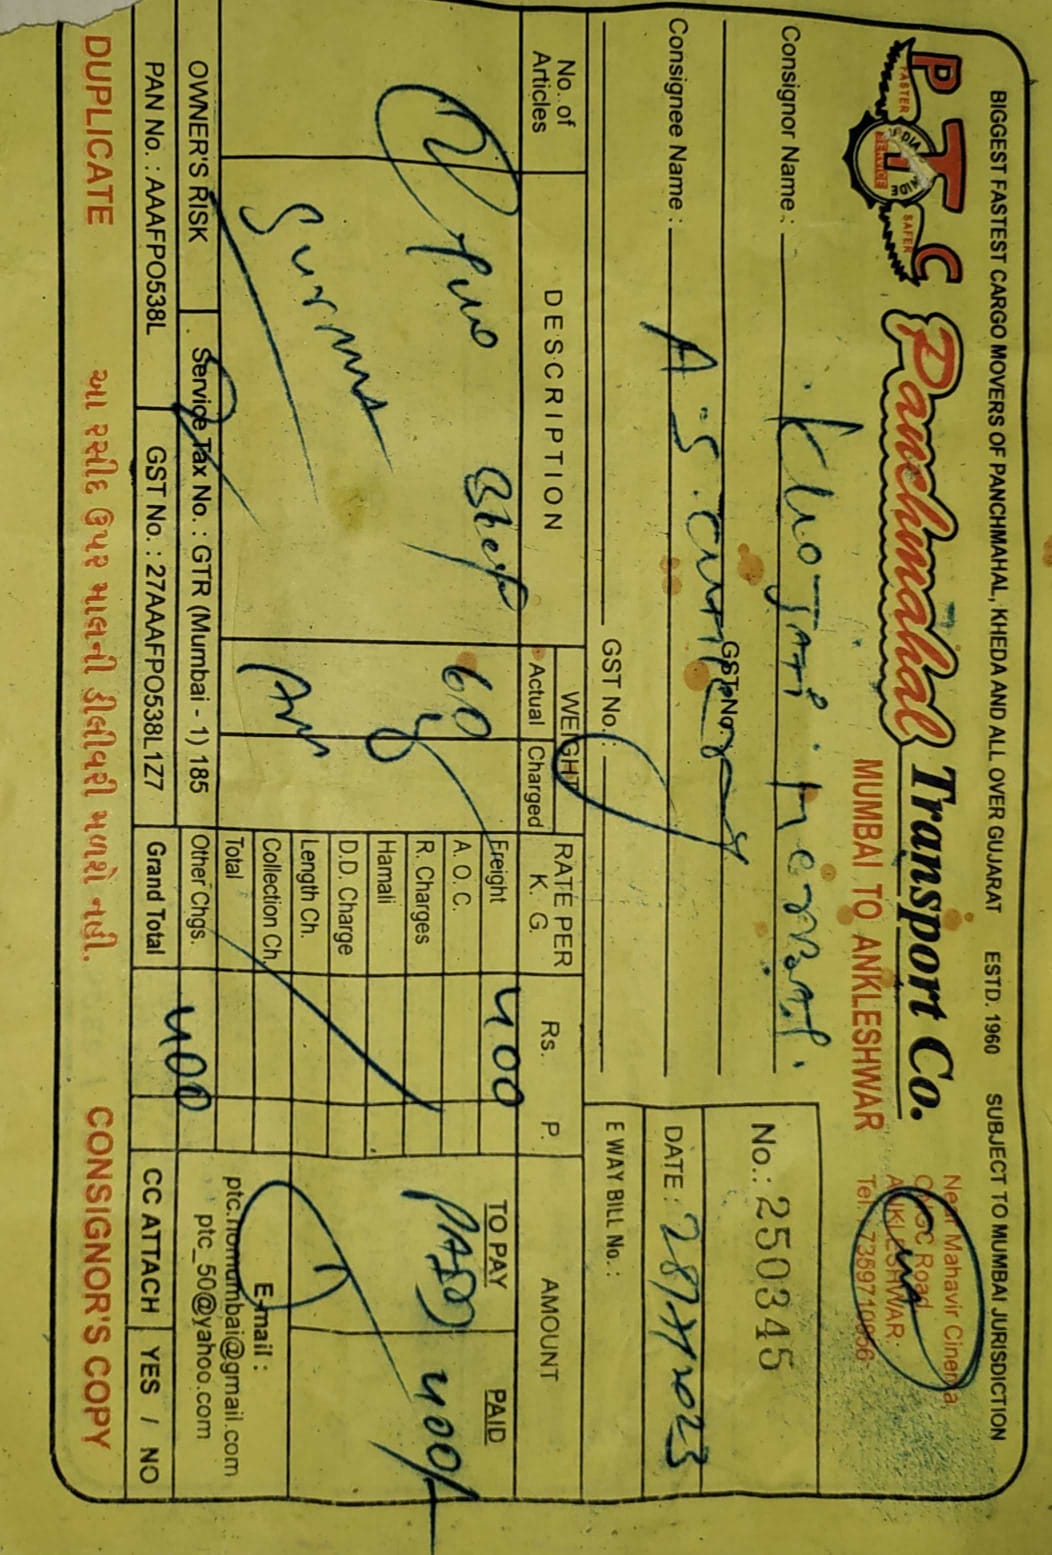 BIGGEST FASTEST CARGO MOVERS OF PANCHMAHAL, KHEDA AND ALL OVER GUJARAT ESTD. 1960 SUBJECT TO MUMBAI JURISDICTION
PTC
FASTER SAFER
SERVICE
Panchmahal Transport Co.
MUMBAI TO ANKLESHWAR
Near Mahavir Cinema
Road
ANKLESHWAR.
Tel.: 7359710656
No.: 250345
Consignor Name :
GST No.
DATE : 28/7/2023
Consignee Name : A.S.
GST No. :
E WAY BILL No. :
No. of Articles
DESCRIPTION
WEIGHT
Actual Charged
RATE PER K. G.
Rs. P.
AMOUNT
TO PAY PAID
2 Two
60
Freight 400
PAID 400/-
A. O. C.
R. Charges
Hamali
D.D. Charge
Length Ch.
Collection Ch.
Total
Other Chgs.
Grand Total 400
E-mail :
ptc.homumbai@gmail.com
ptc_50@yahoo.com
OWNER'S RISK Service Tax No. : GTR (Mumbai - 1) 185
PAN No. : AAAFPO538L GST No. : 27AAAFPO538L1Z7
CC ATTACH YES / NO
DUPLICATE આ રસીદ ઉપર માલની ડીલીવરી મળશે નહી. CONSIGNOR'S COPY